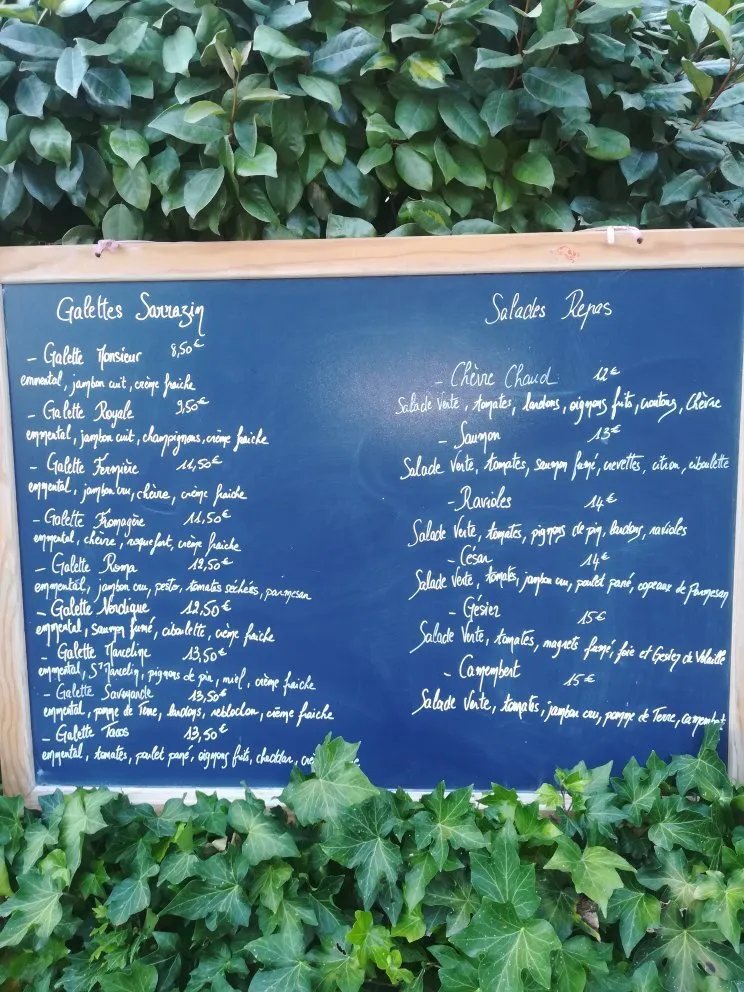 Galettes Sarrazin
- Galette Monsieur 8,50€
emmental, jambon cuit, crème fraiche
- Galette Royale 9,50€
emmental, jambon cuit, champignons, crème fraiche
- Galette Fermière 11,50€
emmental, jambon cru, chèvre, crème fraiche
- Galette Fromagère 11,50€
emmental, chèvre, roquefort, crème fraiche
- Galette Roma 12,50€
emmental, jambon cru, pesto, tomates séchées, parmesan
- Galette Nordique 12,50€
emmental, saumon fumé, ciboulette, crème fraiche
- Galette Marceline 13,50€
emmental, St Marcelin, pignons de pin, miel, crème fraiche
- Galette Savoyarde 13,50€
emmental, pomme de Terre, lardons, reblochon, crème fraiche
- Galette Tacos 13,50€
emmental, tomates, poulet pané, oignons frits, cheddar,
Salades Repas
- Chèvre Chaud 12€
Salade Verte, tomates, lardons, oignons frits, croutons, Chèvre
- Saumon 13€
Salade Verte, tomates, saumon fumé, crevettes, citron, ciboulette
- Ravioles 14€
Salade Verte, tomates, pignons de pin, lardons, ravioles
- César 14€
Salade Verte, tomates, jambon cru, poulet pané, copeaux de Parmesan
- Gésier 15€
Salade Verte, tomates, magrets fumé, foie et Gésier de Volaille
- Camembert 15€
Salade Verte, tomates, jambon cru, pomme de Terre, camembert